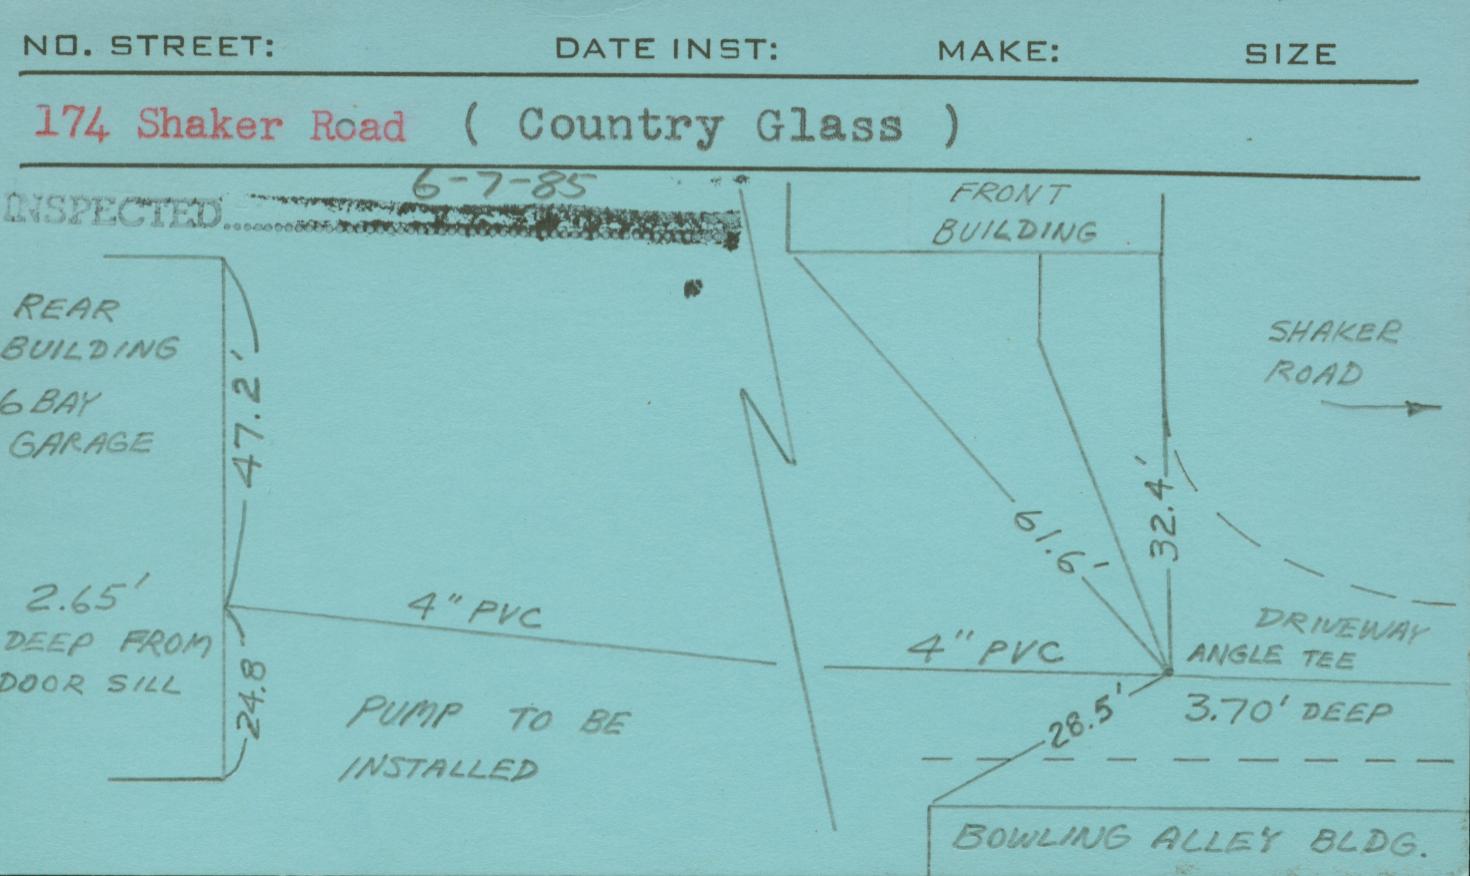 NO. STREET: DATE INST: MAKE: SIZE
174 Shaker Road ( Country Glass )
INSPECTED 6-7-85
FRONT
BUILDING
REAR
BUILDING
6 BAY
GARAGE
47.2'
SHAKER
ROAD
61.6'
32.4'
2.65'
DEEP FROM
DOOR SILL
24.8
4" PVC
4" PVC
DRIVEWAY
ANGLE TEE
3.70' DEEP
28.5'
PUMP TO BE
INSTALLED
BOWLING ALLEY BLDG.